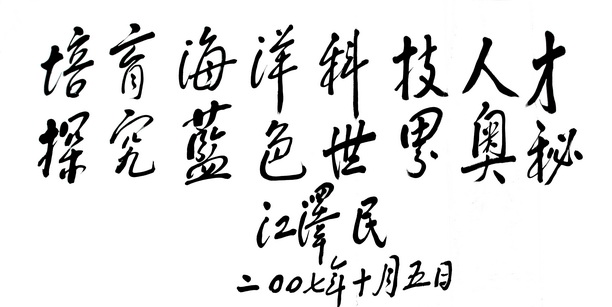 培育海洋科技人才
探究藍色世界奧秘
江澤民
二〇〇七年十月五日